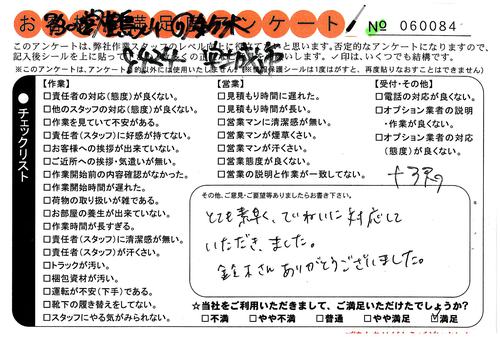 お客様満足度アンケート
No 060084
このアンケートは、弊社作業スタッフのレベル向上に
と思います。否定的なアンケートになりますので、
記入後シールを上に貼って
✓印は、いくつでも結構です。
【作業】
□責任者の対応(態度)が良くない。
□他のスタッフの対応(態度)が良くない。
□作業を見ていて不安がある。
□責任者(スタッフ)に好感が持てない。
□お客様への挨拶が出来ていない。
□ご近所への挨拶・気遣いが無い。
□作業開始前の内容確認がなかった。
□作業開始時間が遅れた。
□荷物の取り扱いが雑である。
□お部屋の養生が出来ていない。
□作業時間が長すぎる。
□責任者(スタッフ)に清潔感が無い。
□責任者(スタッフ)が汗くさい。
□トラックが汚い。
□梱包資材が汚い。
□運転が不安(下手)である。
□靴下の履き替えをしてない。
□スタッフにやる気がみられない。
【営業】
□見積もり時間に遅れた。
□見積もり時間が長い。
□営業マンに清潔感が無い。
□営業マンが煙草くさい。
□営業マンが汗くさい。
□営業態度が良くない。
□営業の説明と作業が一致してない。
【受付・その他】
□電話の対応が良くない。
□オプション業者の説明
・作業が良くない。
□オプション業者の対応
(態度)が良くない。
●チェックリスト
その他、ご意見・ご要望等ありましたらお書き下さい。
とても素早く、ていねいに対応して
いただき、ました。
鈴木さんありがとうございました。
☆当社をご利用いただきまして、ご満足いただけたでしょうか?
□不満 □やや不満 □普通 □やや満足 ☑満足